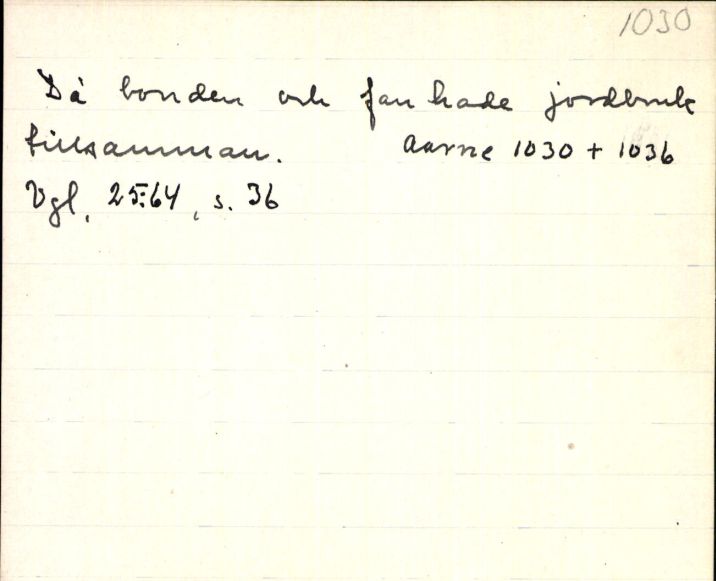 1030
Då bonden och fan hade jordbruk
tillsamman. Aarne 1030 + 1036
Vgl. 25:64, s. 36